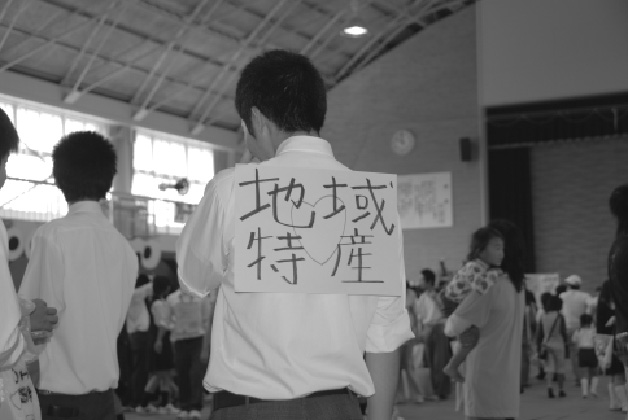 地域
特産